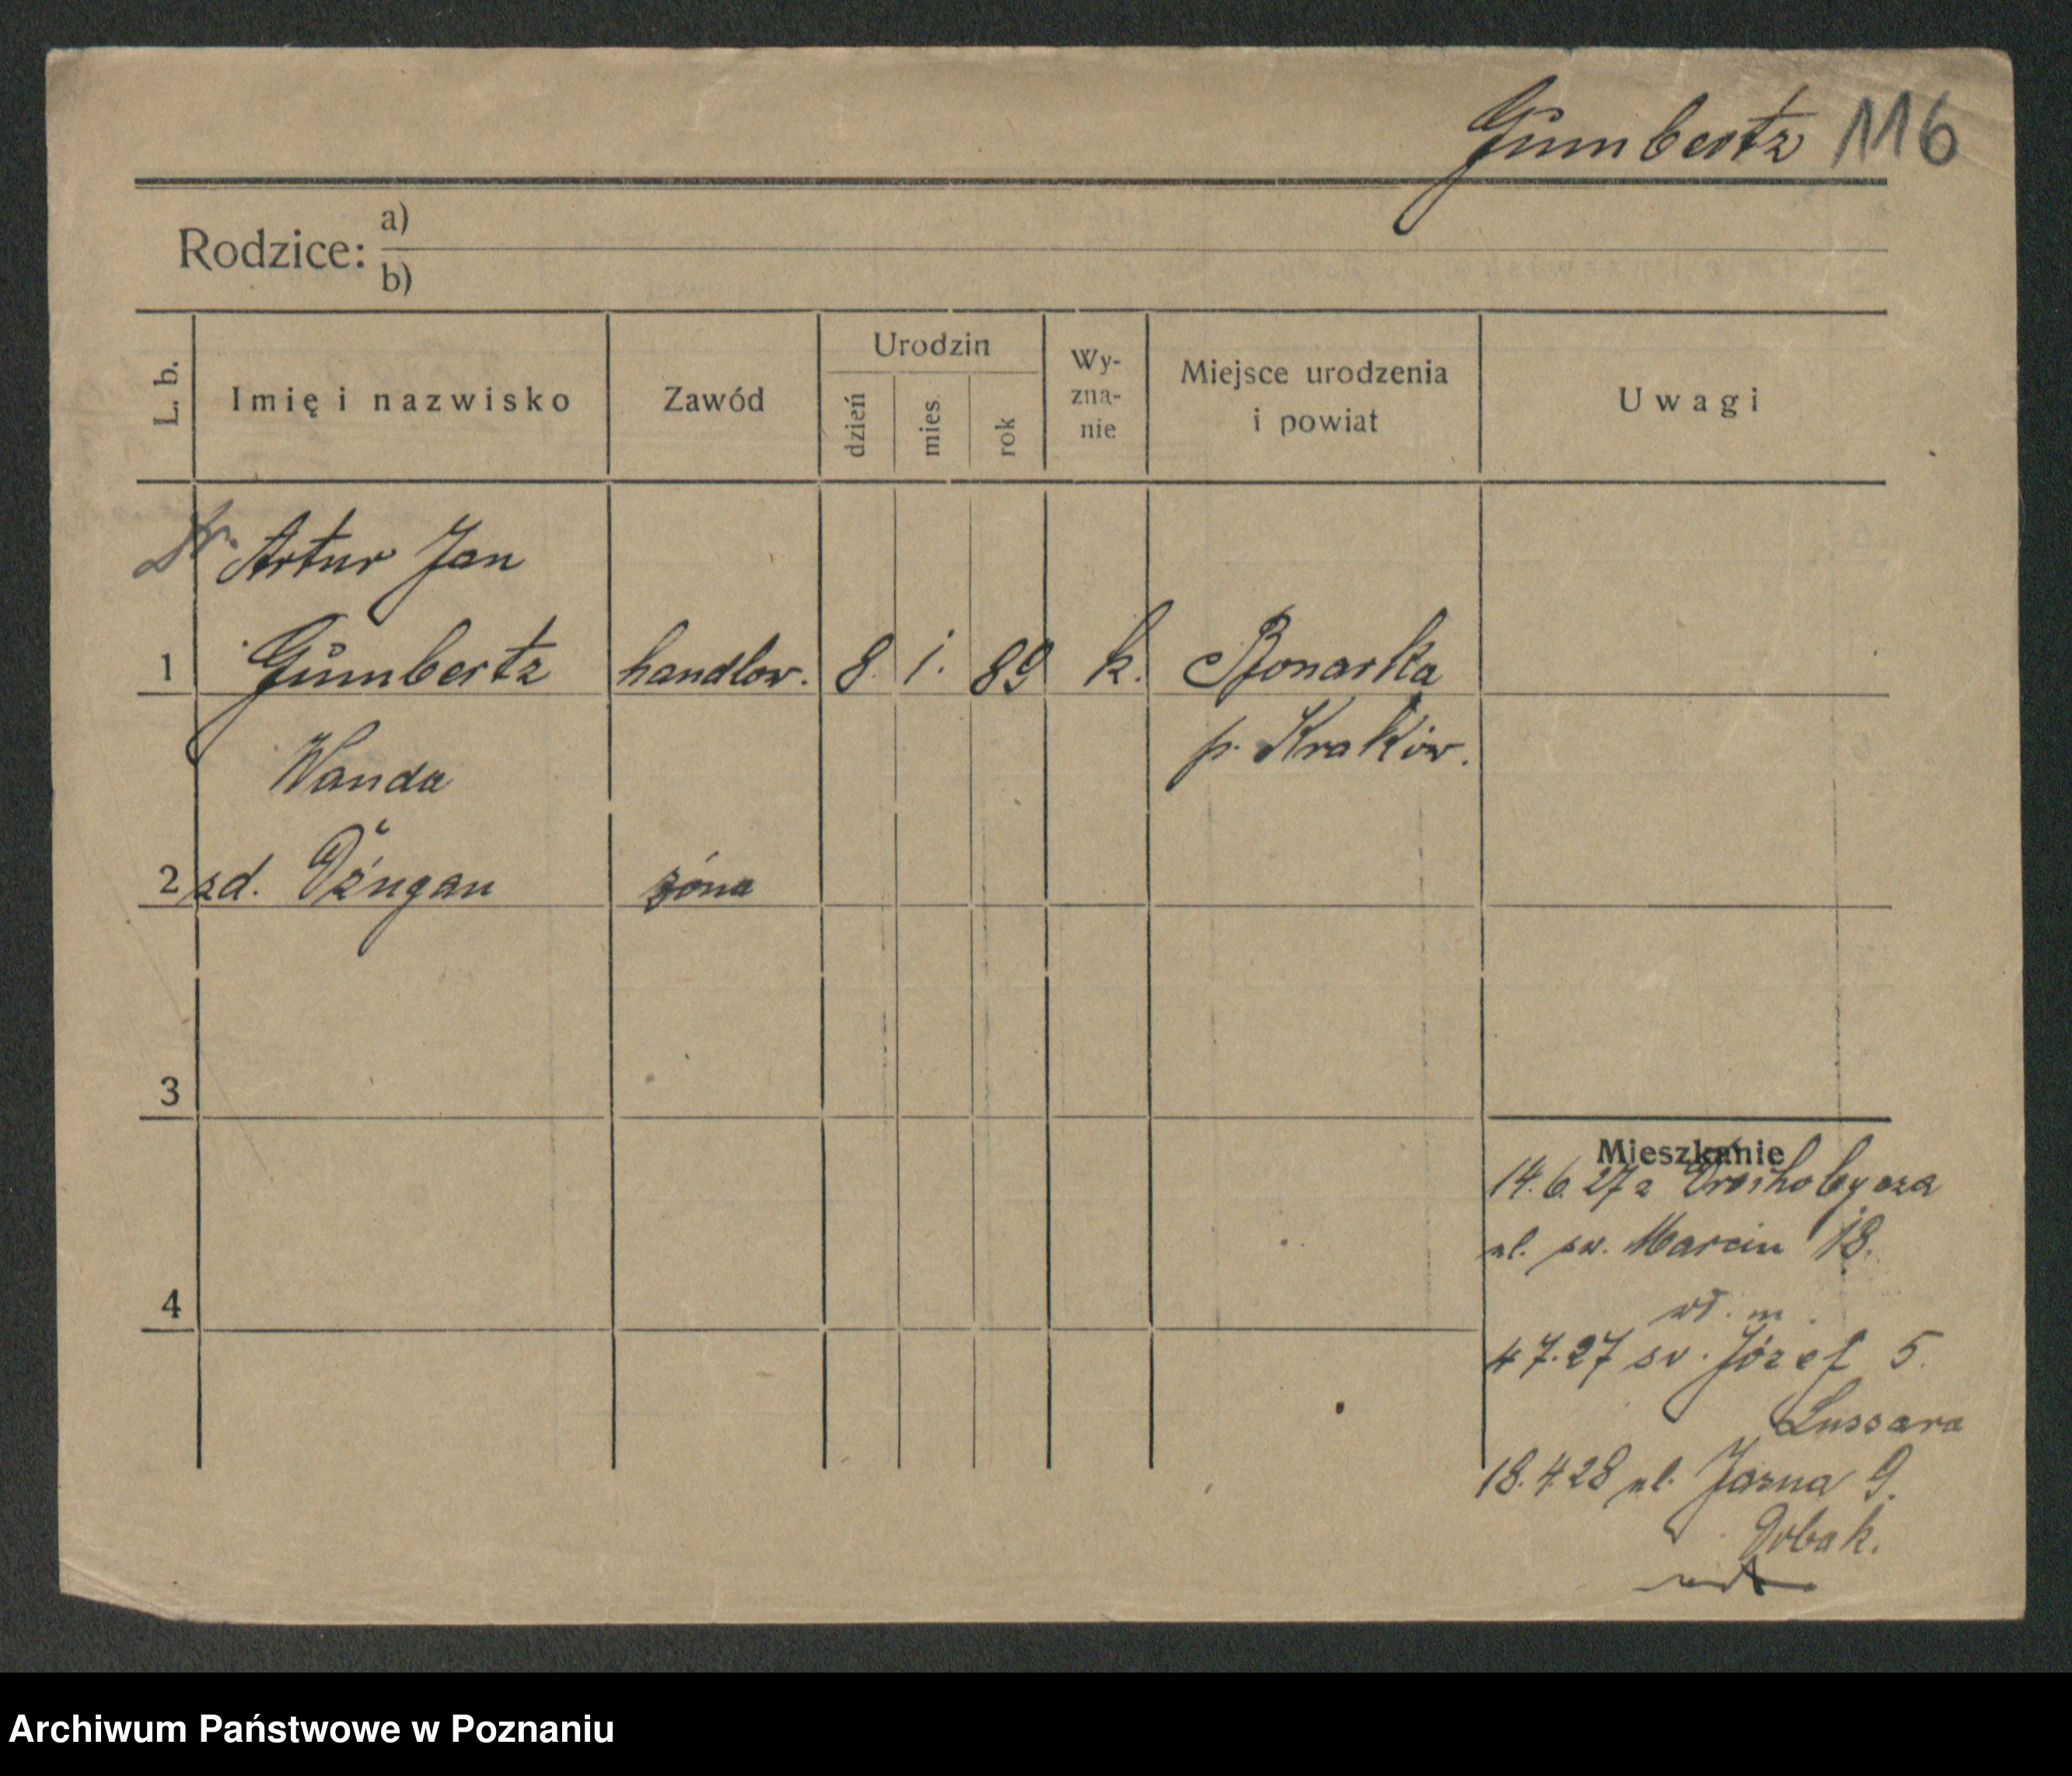 Gumbertz 116
Rodzice: a)
b)
L. b. Imię i nazwisko Zawód Urodzin dzień mies. rok Wy-zna-nie Miejsce urodzenia i powiat Uwagi
Dr. Artur Jan
1 Gumbertz handlow. 8. 1. 89 k. Bonarka
p. Kraków.
Wanda
2 zd. Dżugan żona
3
Mieszkanie
14.6.27 z Drohobycza
ul. św. Marcin 18.
4
wł. m.
4 7.27 św. Józef 5.
Lussara
18.4.28 ul. Jasna 9.
Archiwum Państwowe w Poznaniu